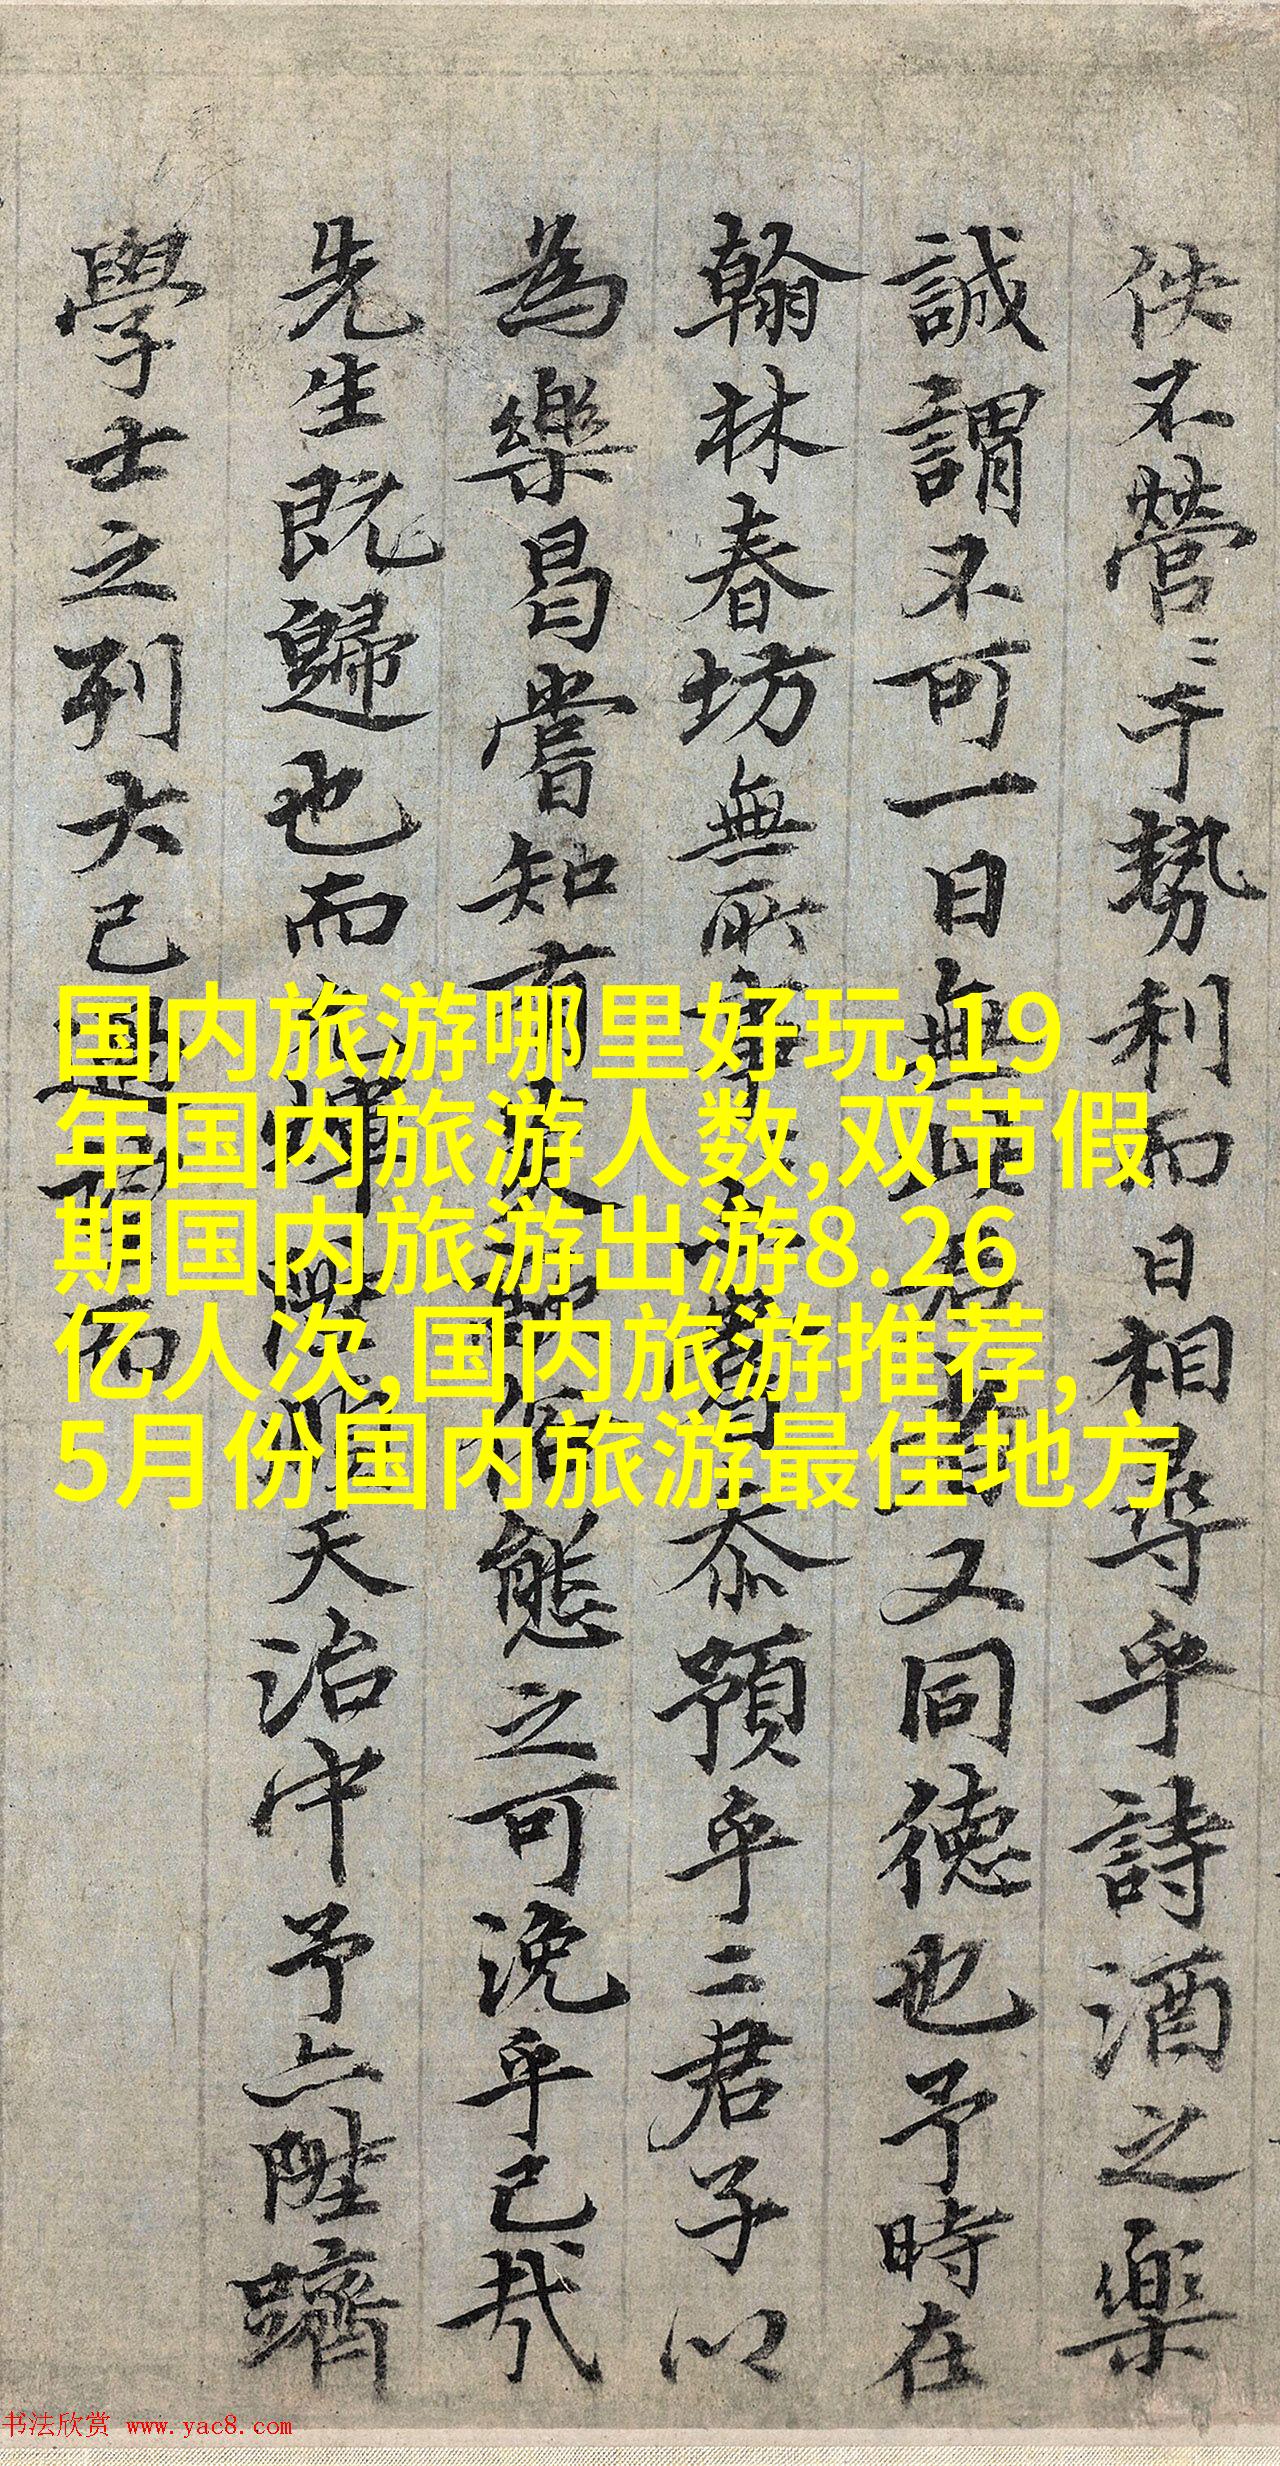 佚不營〻于勢利而日相尋乎詩酒之樂
誠謂不可一日無此君者又同德也予時在
翰林春坊無所忝預乎二君子以
為樂曷嘗知有態之可浼乎己哉
先生既歸也而天治中予亦陞躋
學士之列大己而
国内旅游哪里好玩,19
年国内旅游人数,双节假
期国内旅游出游8.26
亿人次,国内旅游推荐,
5月份国内旅游最佳地方
书法欣赏 www.yac8.com